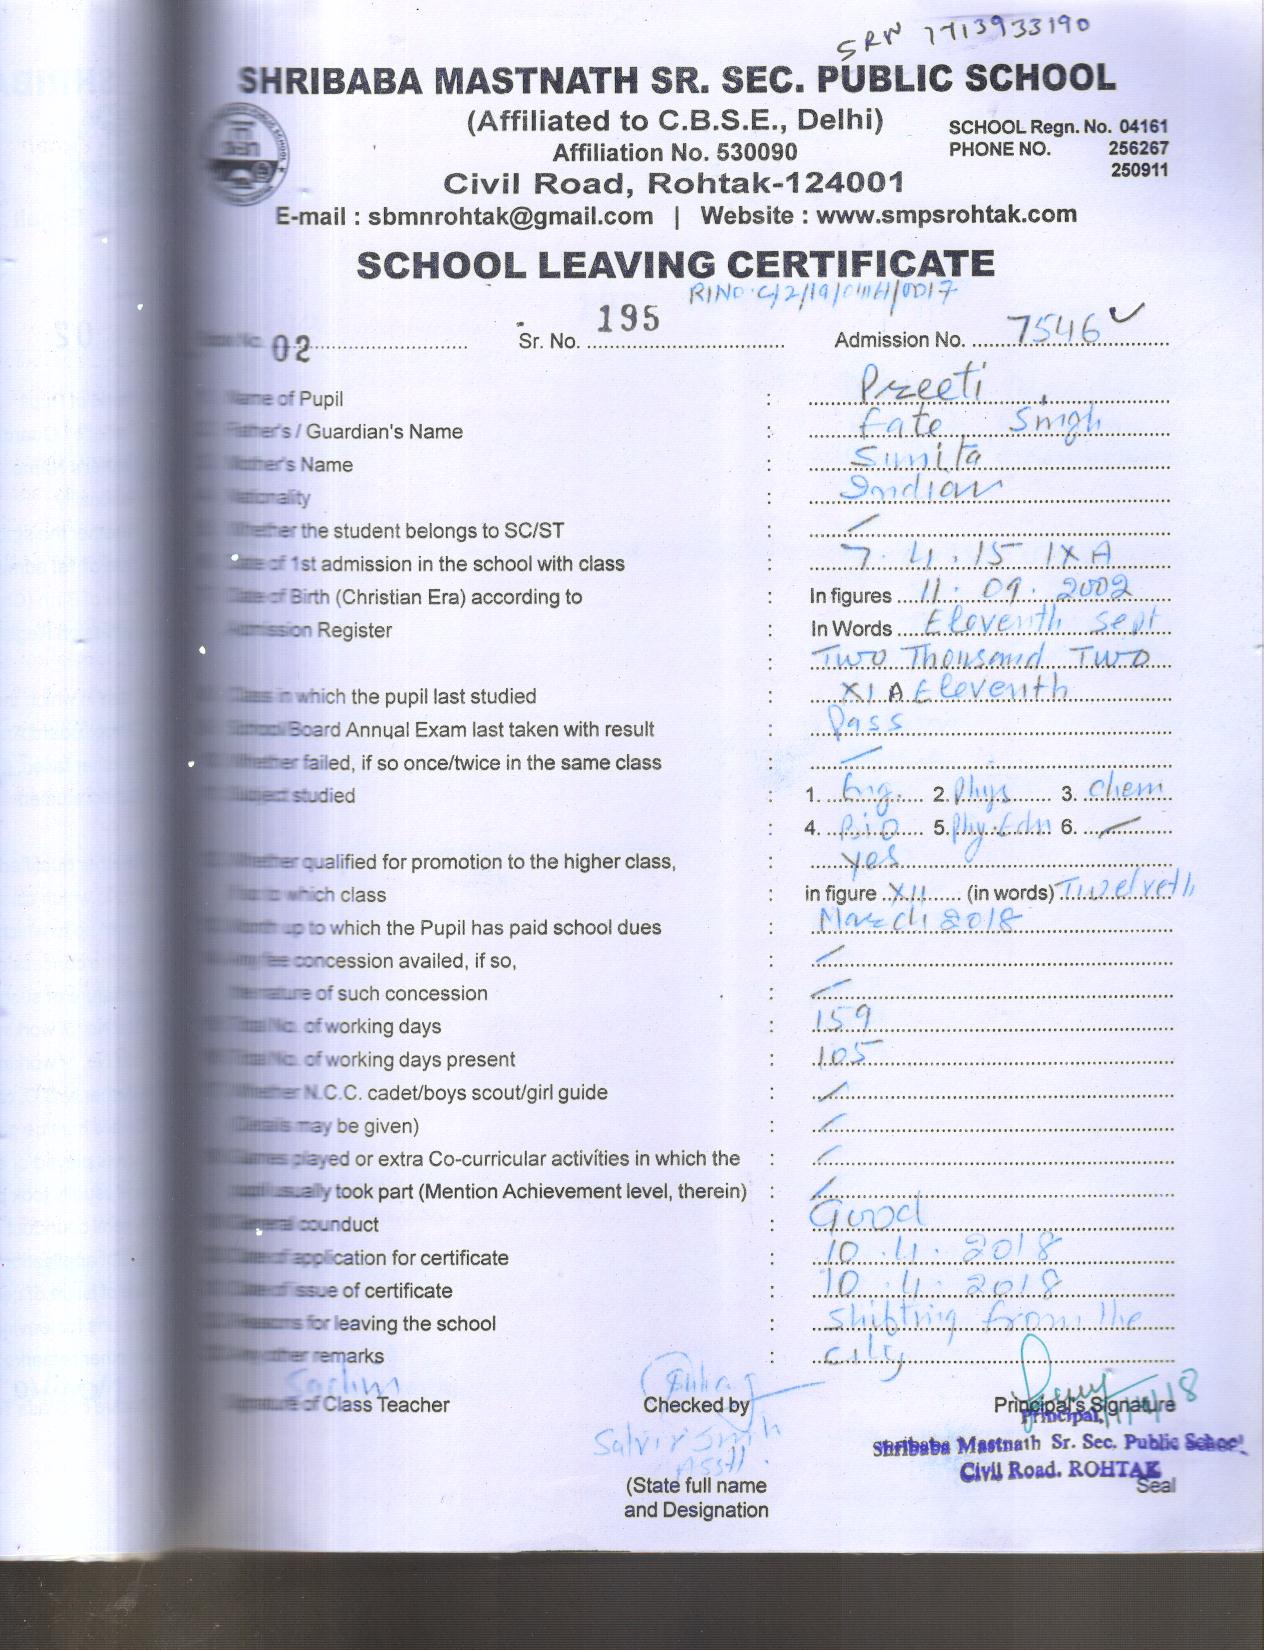 SRN 1713933190
SHRIBABA MASTNATH SR. SEC. PUBLIC SCHOOL
(Affiliated to C.B.S.E., Delhi)
SCHOOL Regn. No. 04161
Affiliation No. 530090
PHONE NO. 256267
250911
Civil Road, Rohtak-124001
E-mail : sbmnrohtak@gmail.com | Website : www.smpsrohtak.com
SCHOOL LEAVING CERTIFICATE
02 Sr. No. 195 Admission No. 7546
Name of Pupil : Preeti
Father's / Guardian's Name : Fate Singh
Mother's Name : Sunita
Nationality : Indian
Whether the student belongs to SC/ST :
Date of 1st admission in the school with class : 7.4.15 IX A
Date of Birth (Christian Era) according to : In figures 11.09.2002
Admission Register : In Words Eleventh Sept
: Two Thousand Two
Class in which the pupil last studied : XI A Eleventh
School Board Annual Exam last taken with result : Pass
Whether failed, if so once/twice in the same class :
Subject studied : 1. Eng. 2. Phys 3. Chem
: 4. Bio 5. Phy. Edn 6.
Whether qualified for promotion to the higher class, : Yes
to which class : in figure XII (in words) Twelveth
Month up to which the Pupil has paid school dues : March 2018
Any fee concession availed, if so, :
the nature of such concession :
Total No. of working days : 159
Total No. of working days present : 105
Whether N.C.C. cadet/boys scout/girl guide :
(Details may be given) :
Games played or extra Co-curricular activities in which the :
pupil usually took part (Mention Achievement level, therein) :
General counduct : Good
Date of application for certificate : 10.4.2018
Date of issue of certificate : 10.4.2018
Reasons for leaving the school : Shifting from the
Any other remarks : City
Signature of Class Teacher Checked by Principal's Signature
Principal,
Shribaba Mastnath Sr. Sec. Public School
Civil Road. ROHTAK
(State full name Seal
and Designation